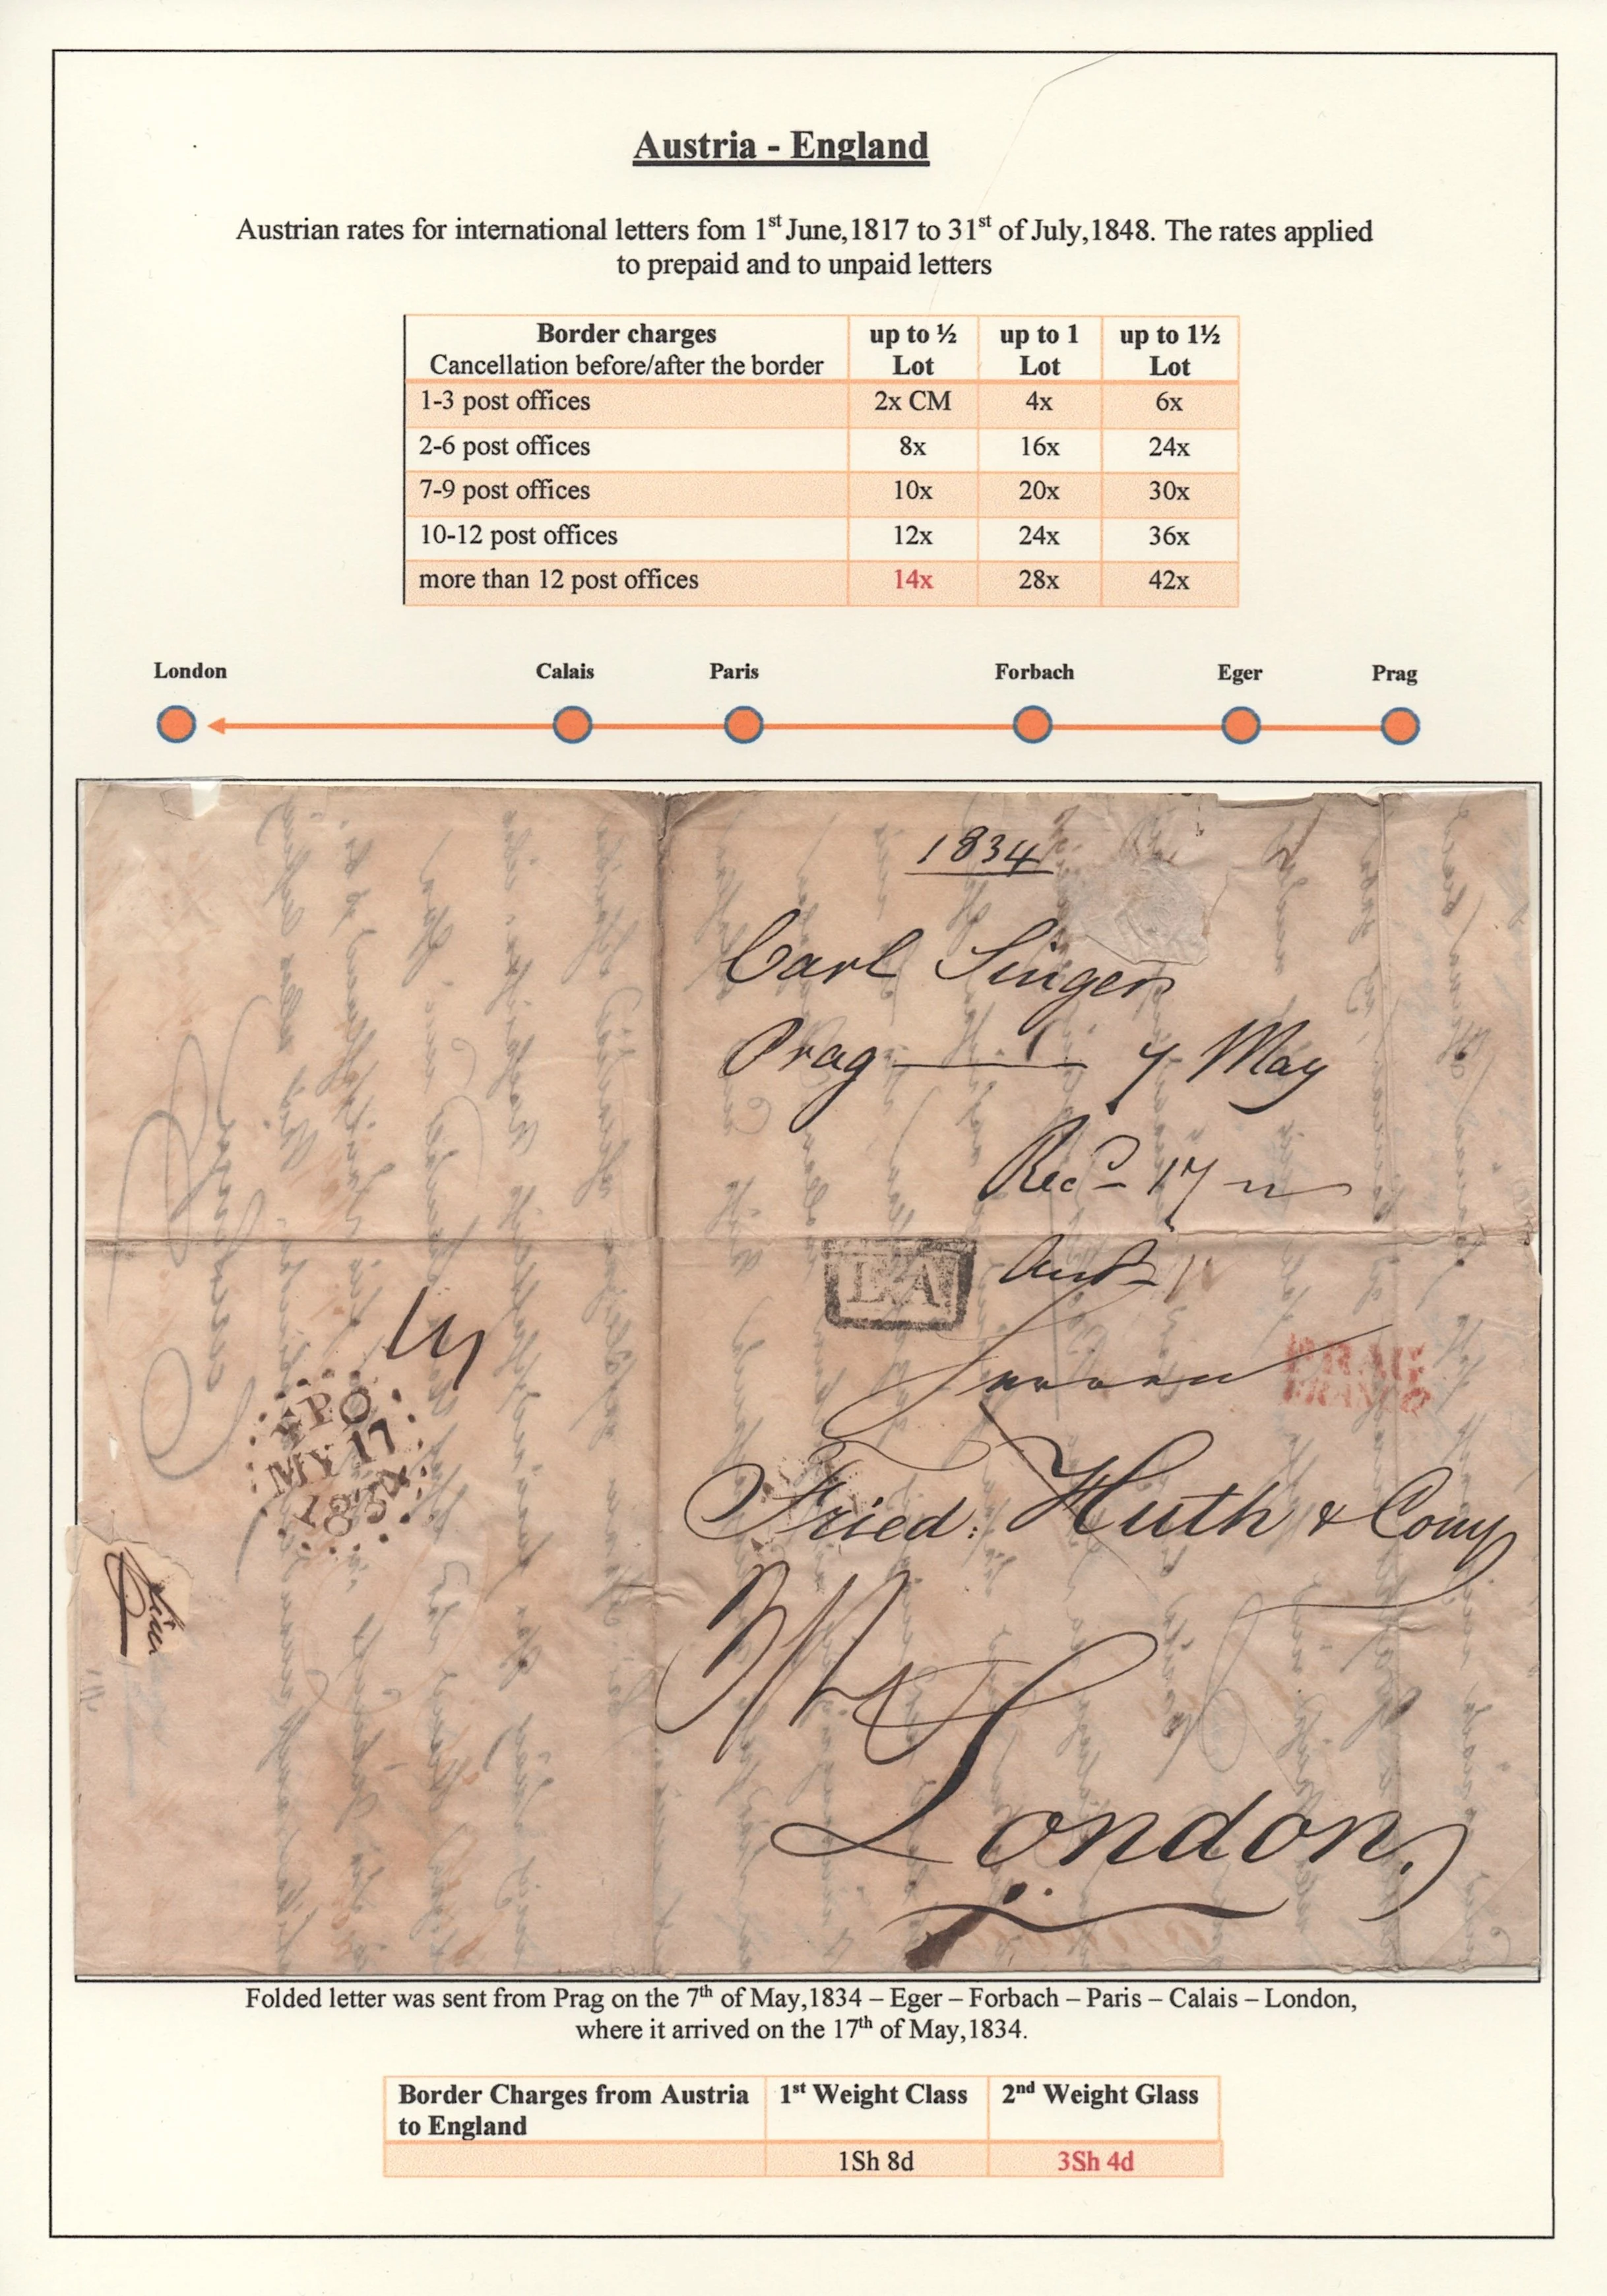 Austria - England
Austrian rates for international letters fom 1st June,1817 to 31st of July,1848. The rates applied
to prepaid and to unpaid letters
Border charges up to ½ up to 1 up to 1½
Cancellation before/after the border Lot Lot Lot
1-3 post offices 2x CM 4x 6x
2-6 post offices 8x 16x 24x
7-9 post offices 10x 20x 30x
10-12 post offices 12x 24x 36x
more than 12 post offices 14x 28x 42x
London Calais Paris Forbach Eger Prag
1834
Carl Singer
Prag 7 May
Recd 17
L.A
PRAG
FRANCO
FPO
MY 17
1834
Fried: Huth & Comp
London.
Folded letter was sent from Prag on the 7th of May,1834 – Eger – Forbach – Paris – Calais – London,
where it arrived on the 17th of May,1834.
Border Charges from Austria 1st Weight Class 2nd Weight Glass
to England
1Sh 8d 3Sh 4d